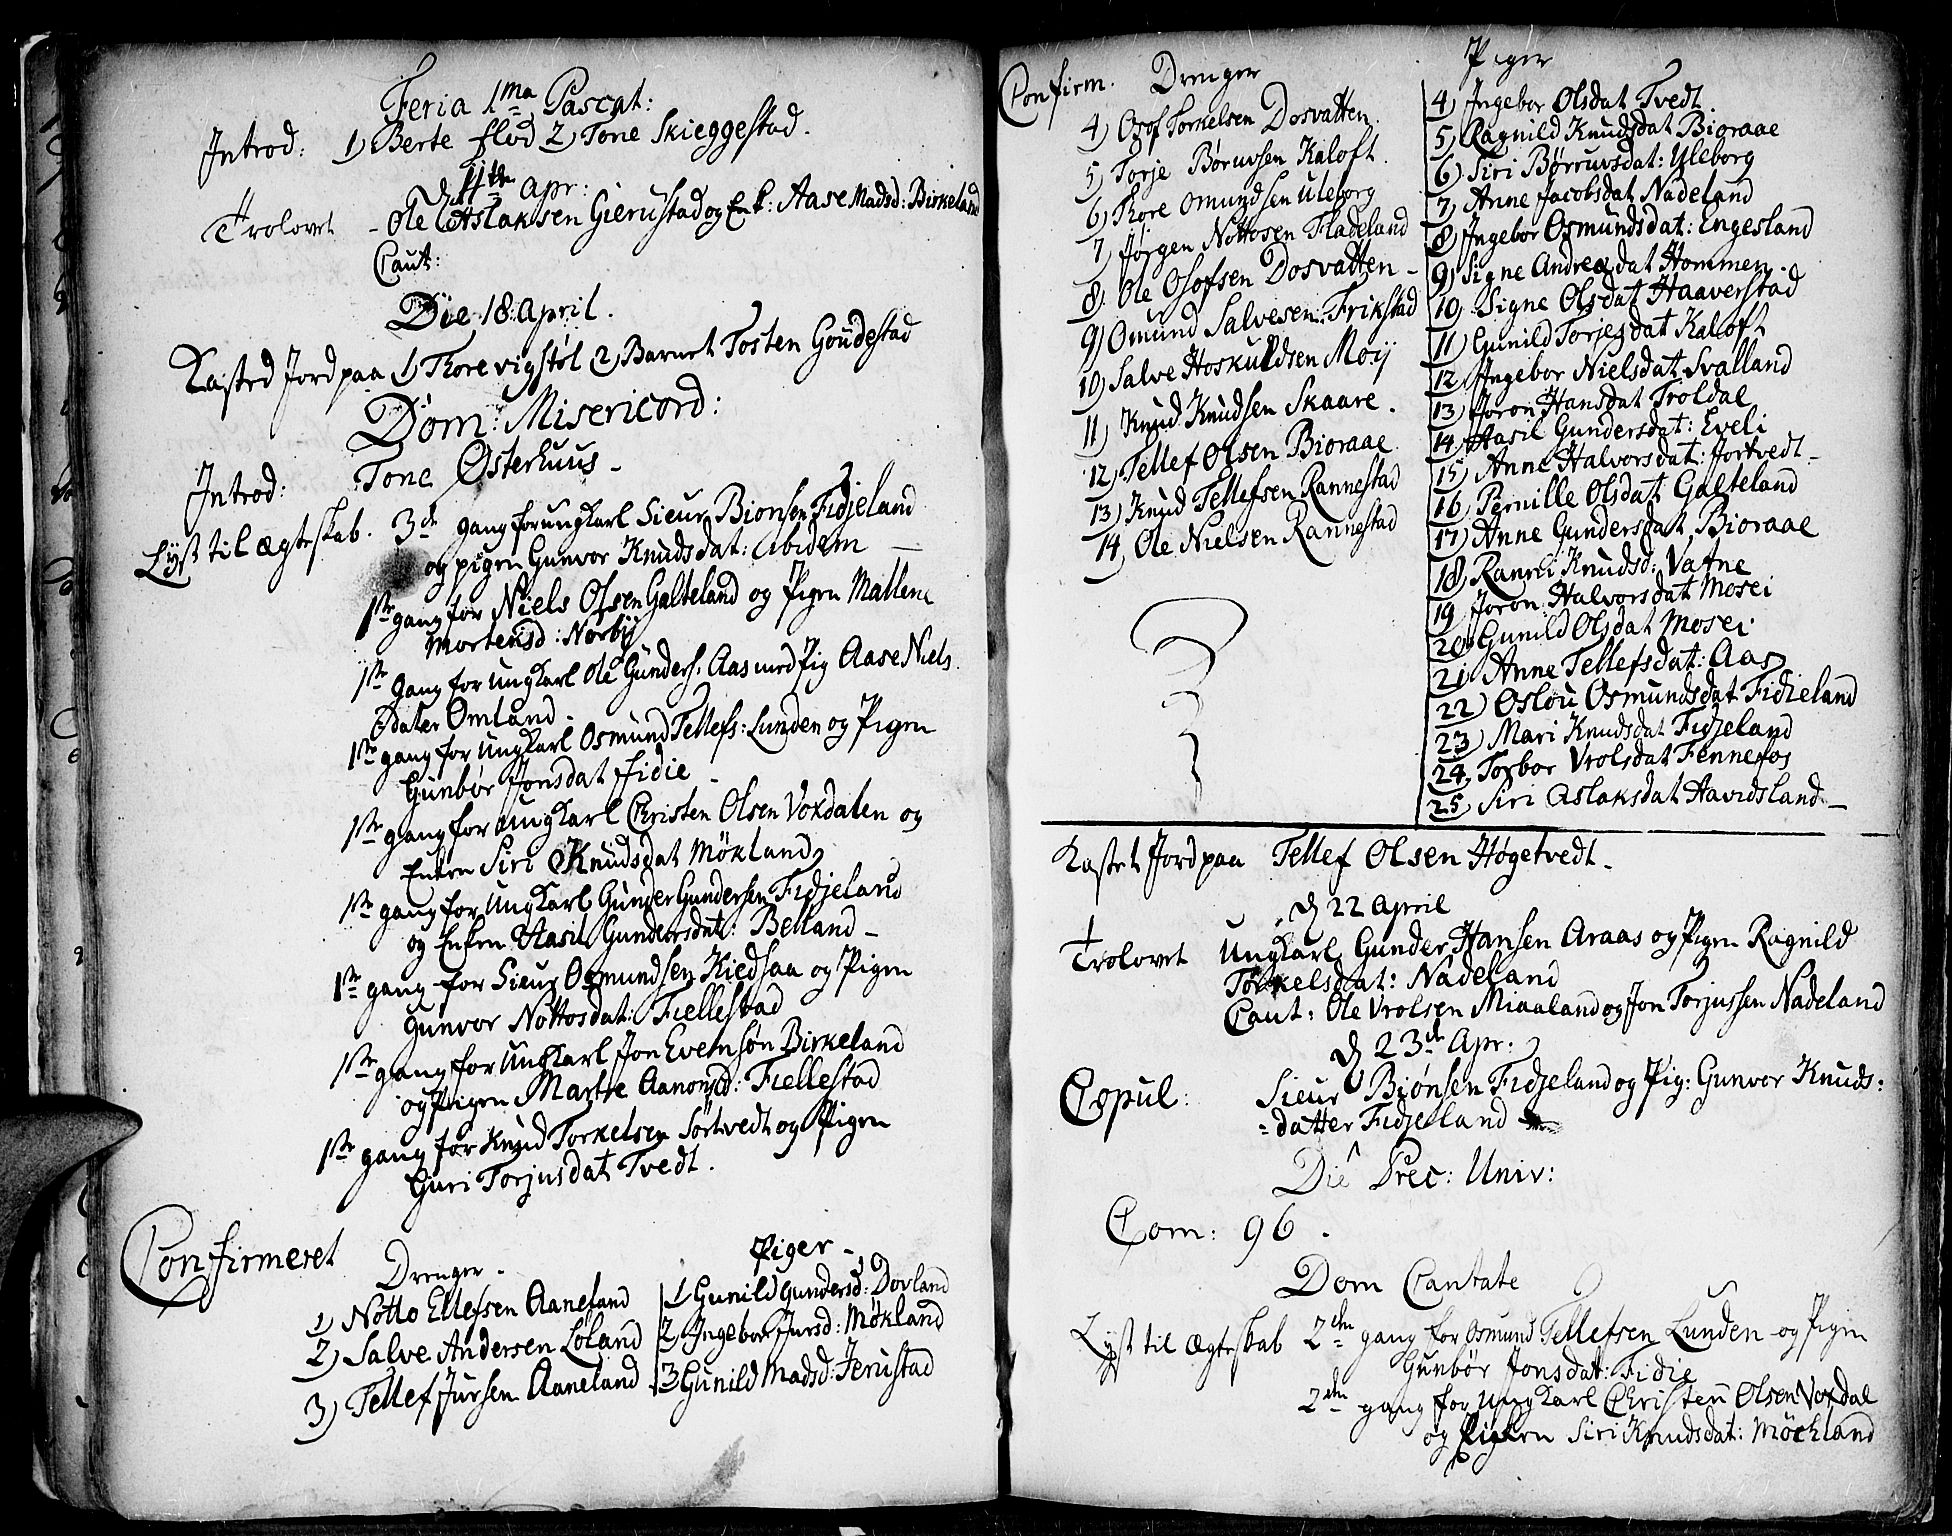 Feria 1ma Pascat:
Introd: 1) Berte flod 2) Tone Skieggestad.
D 11te Apr:
Trolovet - Ole Aslaksen Gierustad og Enk: Aase Madsd: Birkeland
Caut:
Die 18 April.
Kasted Jord paa 1) Thore vigstøl 2) Barnet Tosten Goudestad
Dom: Misericord:
Introd: Tone Østerhuus -
Lyst til Ægteskab. 3de gang for ungkarl Sieur Bionsen Fidjeland
og pigen Gunvor Knudsdat: ibidem -
1ste gang for Niels Olsen Galteland og Pigen Mallene
Mortensd: Norbÿ
1ste Gang for ungkarl Ole Gunders: Aas med Pig Aase Niels
datter Omland -
1ste gang for ungkarl Osmund Tellefs: Lunden og Pigen
Gunbør Jonsdat Fidie -
1ste gang for ungkarl Christen Olsen Voxdalen og
Enken Siri Knudsdat Møkland
1ste gang for ungkarl Gunder Gundersen Fidjeland
og Enken Aasil Gundersdat: Belland -
1ste gang for Sieur Osmundsen Kiedsaa og Pigen
Gunvor Nottosdat: Fiellestad
1ste gang for ungkarl Jon Evensøn Birkeland
og Pigen Marthe Aanonsd: Fiellestad
1ste gang for Knud Torkelsen Sørtvedt og Pigen
Guri Torjusdat Tvedt.
Confirmeret
Drenger - Piger -
1) Notto Ellefsen Aaneland 1 Gunild Gundersd: Dovland
2) Salve Andersen Løland 2) Ingebor Jursd: Møkland
3) Tellef Jursen Aaneland 3 Gunild Madsd: Jerustad
Confirm. Drenger
4) Osof Torkelsen Dosvatten.
5) Torje Børuvsen Kaloft.
6) Thore Omundsen Uleborg
7) Jørgen Nottosen Fladeland
8) Ole Osofsen Dosvatten -
9) Omund Salvesen Frikstad
10) Salve Hoskuldsen Moij
11) Knud Knudsen Skaare.
12) Tellef Olsen Bioraae
13) Knud Tellefsen Rannestad
14) Ole Nielsen Rannestad
Piger
4) Ingebor Olsdat Tvedt.
5) Ragnild Knudsdat Bioraae
6) Siri Børruvsdat: Uleborg
7) Anne Jacobsdat Nadeland
8) Ingebor Osmundsdat: Engesland
9) Signe Andreasdat Hommen.
10) Signe Olsdat Haaverstad
11) Gunild Torjesdat Kaloft
12) Ingebor Nielsdat Svalland
13) Joron Hansdat Troldal
14) Aasil Gundersdat: Eveli
15) Anne Halvorsdat: Jortvedt -
16) Pernille Olsdat Galteland
17) Anne Gundersdat Bioraae
18) Rannei Knudsd: Vatne
19) Joron Halvorsdat Mosei
20) Gunild Olsdat Mosei
21) Anne Tellefsdat: Aas
22) Oslou Osmundsdat Fidieland
23) Mari Knudsdat Fidjeland
24) Torbor Vrolsdat Fennefos
25) Siri Aslaksdat Havidsland -
Kastet Jord paa Tellef Olsen Høgetvedt -
D 22 April
Trolovet Ungkarl Gunder Hansen Araas og Pigen Ragnild
Torkelsdat: Nadeland
Caut: Ole Vrolsen Miaaland og Jon Torjussen Nadeland
D 23de Apr:
Copul: Sieur Biønsen Fidjeland og Pig: Gunvor Knuds:
=datter Fidjeland
Die Prec: Univ:
Com: 96.
Dom Cantate
Lyst til Ægteskab 2den gang for Osmund Tellefsen Lunden og Pigen
Gunbør Jonsdat: Fidie
2den gang for ungkarl Christen Olsen Voxdal
og Siri Knudsdat: Møckland